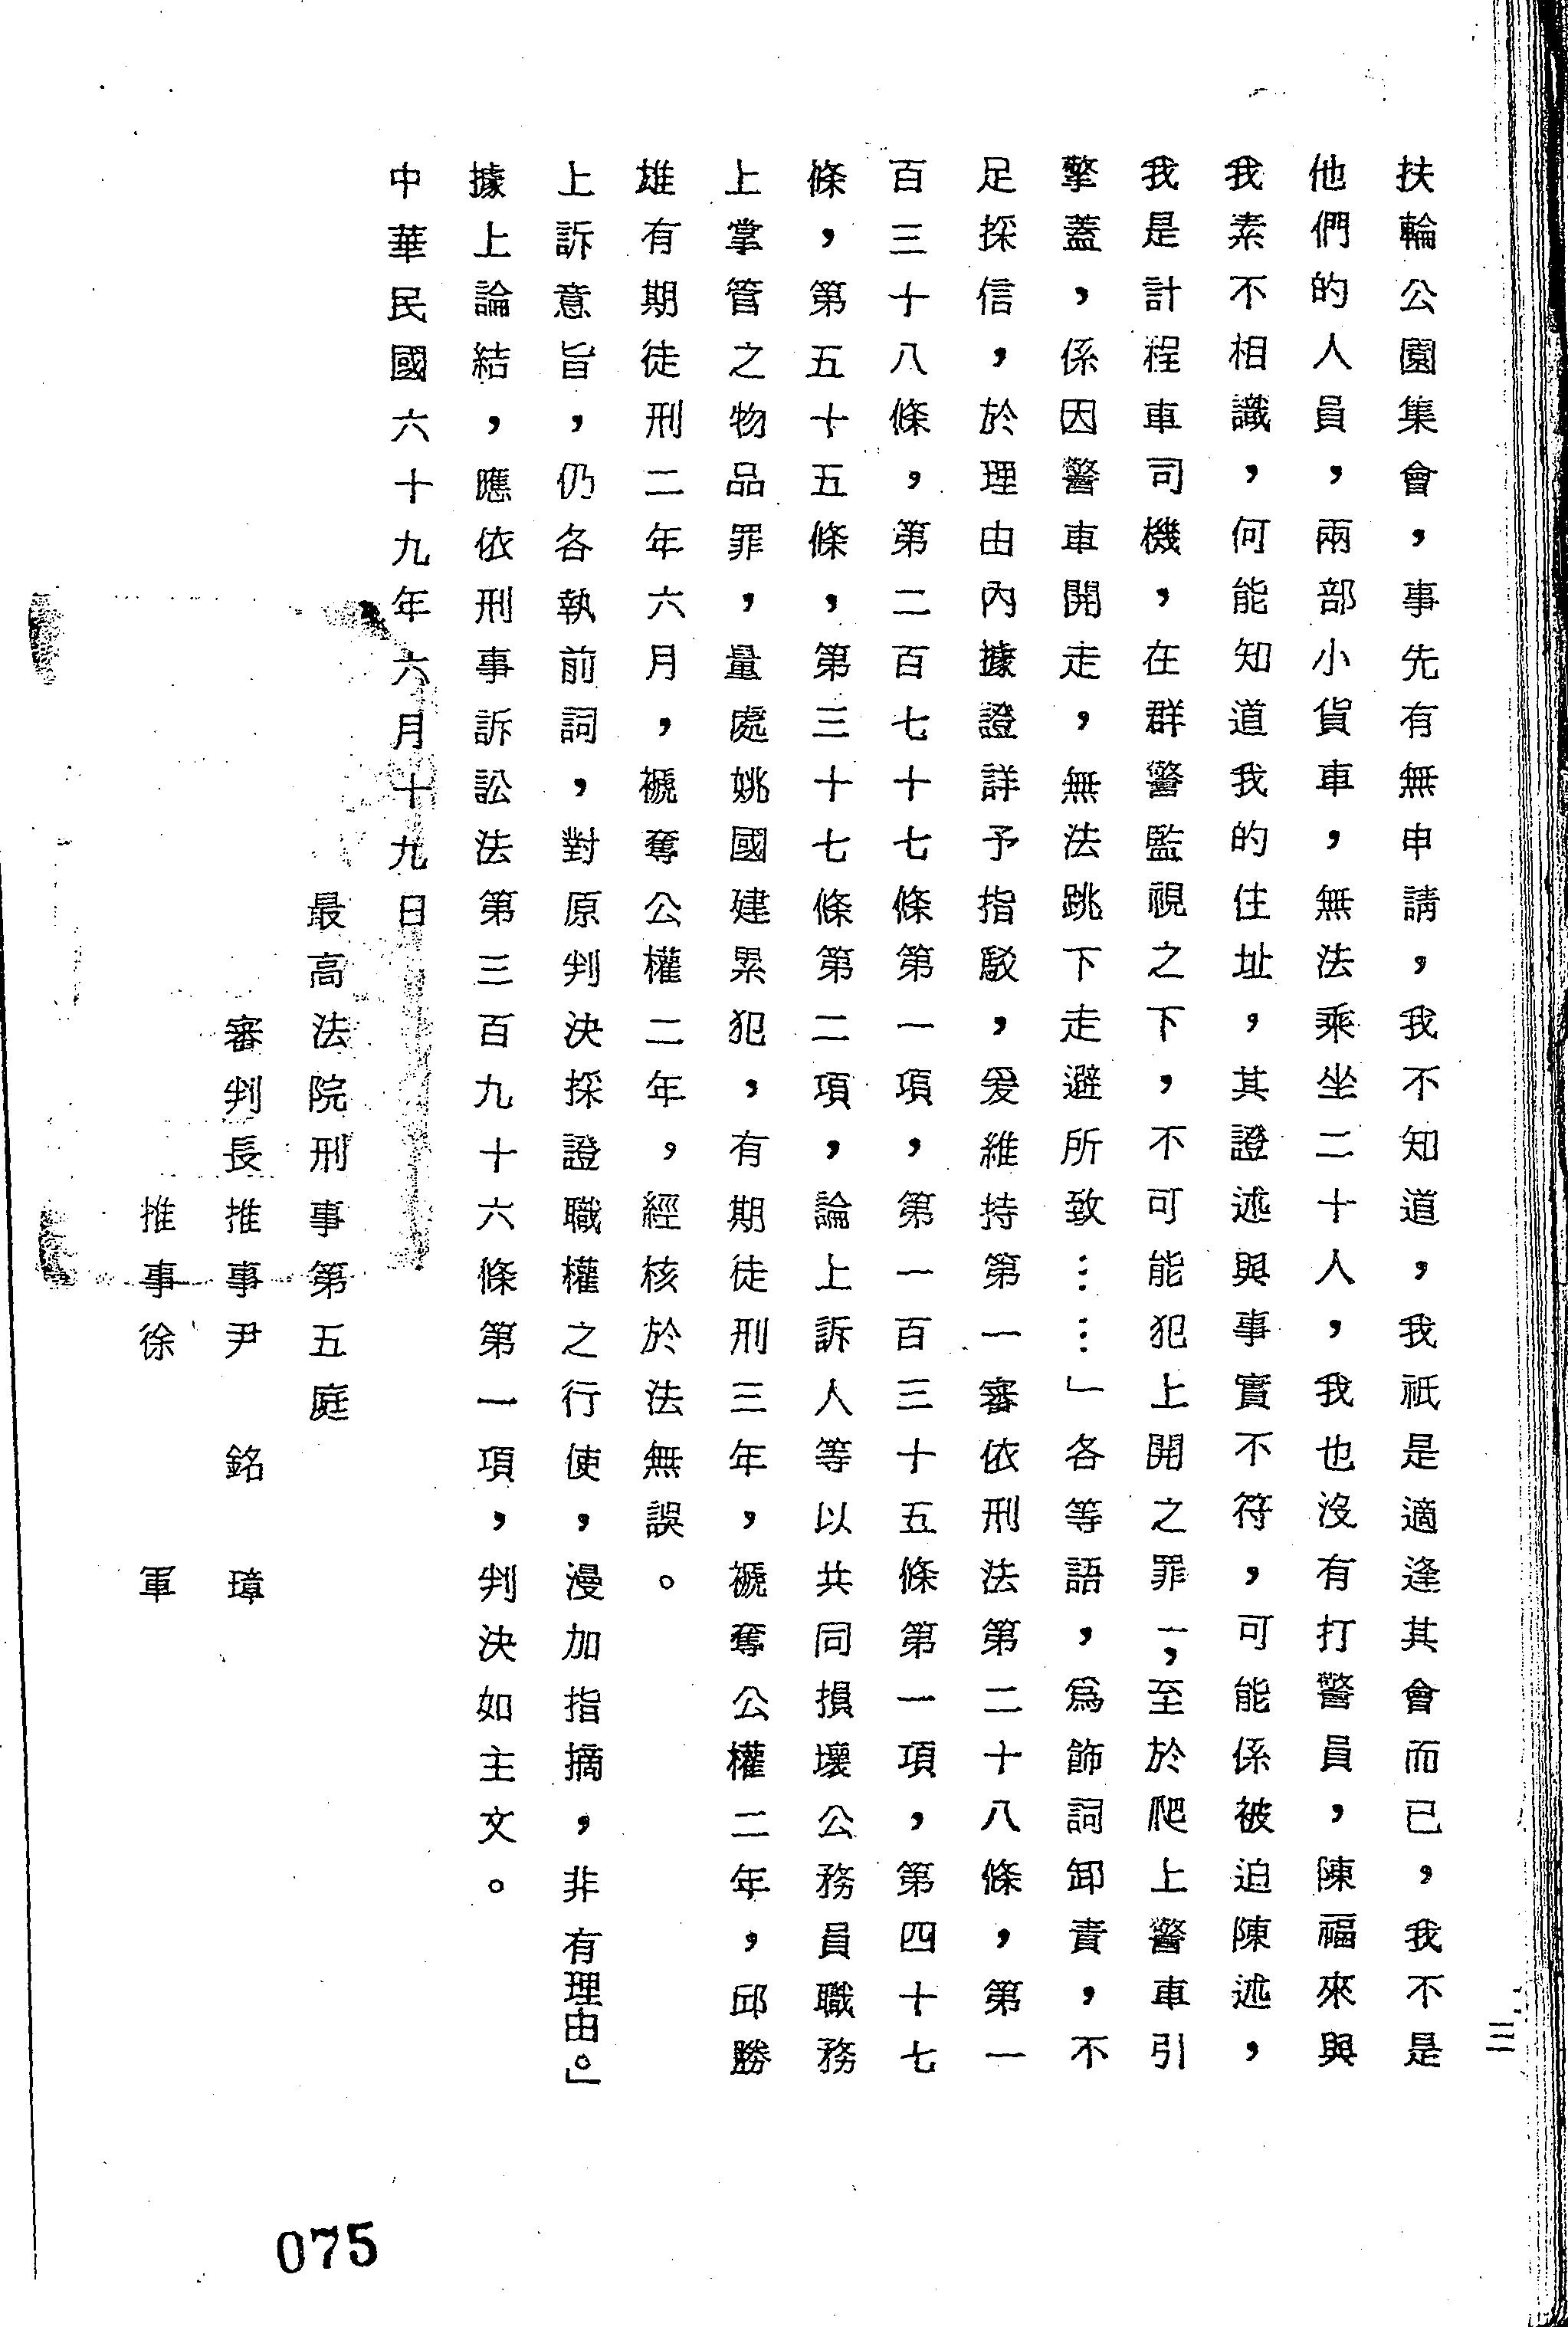 三
扶輪公園集會，事先有無申請，我不知道，我祇是適逢其會而已，我不是
他們的人員，兩部小貨車，無法乘坐二十人，我也沒有打警員，陳福來與
我素不相識，何能知道我的住址，其證述與事實不符，可能係被迫陳述，
我是計程車司機，在群警監視之下，不可能犯上開之罪」，至於爬上警車引
擎蓋，係因警車開走，無法跳下走避所致……」各等語，為飾詞卸責，不
足採信，於理由內據證詳予指駁，爰維持第一審依刑法第二十八條，第一
百三十八條，第二百七十七條第一項，第一百三十五條第一項，第四十七
條，第五十五條，第三十七條第二項，論上訴人等以共同損壞公務員職務
上掌管之物品罪，量處姚國建累犯，有期徒刑三年，褫奪公權二年，邱勝
雄有期徒刑二年六月，褫奪公權二年，經核於法無誤。
上訴意旨，仍各執前詞，對原判決採證職權之行使，漫加指摘，非有理由。」
據上論結，應依刑事訴訟法第三百九十六條第一項，判決如主文。
中華民國六十九年六月十九日
最高法院刑事第五庭
審判長推事尹銘璋
推事徐軍
075